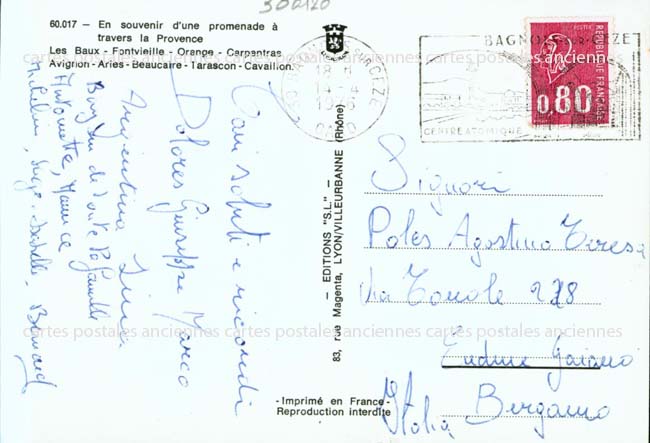 300120
60.017 — En souvenir d'une promenade à
travers la Provence
Les Baux - Fontvieille - Orange - Carpentras
Avignon - Arles - Beaucaire - Tarascon - Cavaillon
Cari saluti e ricordi
Dolores Giuseppe Marco
Argentina Lina
Bonjour de toute la famille
Antoinette, Maurice
Micheline, Serge - Isabelle - Bernard
— EDITIONS "S.L." —
83, rue Magenta, LYON/VILLEURBANNE (Rhône)
- Imprimé en France -
Reproduction interdite
BAGNOLS SUR CEZE
GARD
BAGNOLS SUR CEZE
CENTRE ATOMIQUE
REPUBLIQUE FRANÇAISE
0.80
Signori
Poles Agostino Teresa
Via Tonale 278
Endine Gaiano
Bergamo
Italia
cartes postales anciennes cartes postales anciennes cartes postales anciennes
cartes postales anciennes cartes postales anciennes cartes postales anciennes